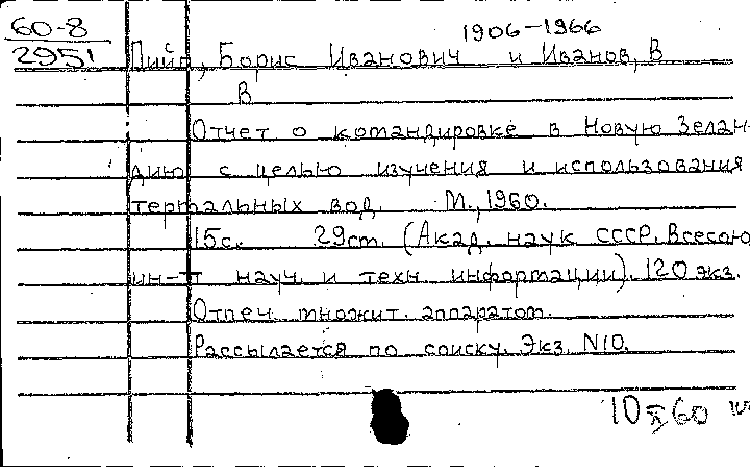 60-8
2951
1906-1966
Пийп, Борис Иванович и Иванов, В
В
Отчет о командировке в Новую Зелан-
дию с целью изучения и использования
термальных вод. М., 1960.
15с. 29см. (Акад. наук СССР. Всесоюз
ин-т науч. и техн. информации). 120 экз.
Отпеч. множит. аппаратом.
Рассылается по списку. Экз. N10.
10 X 60